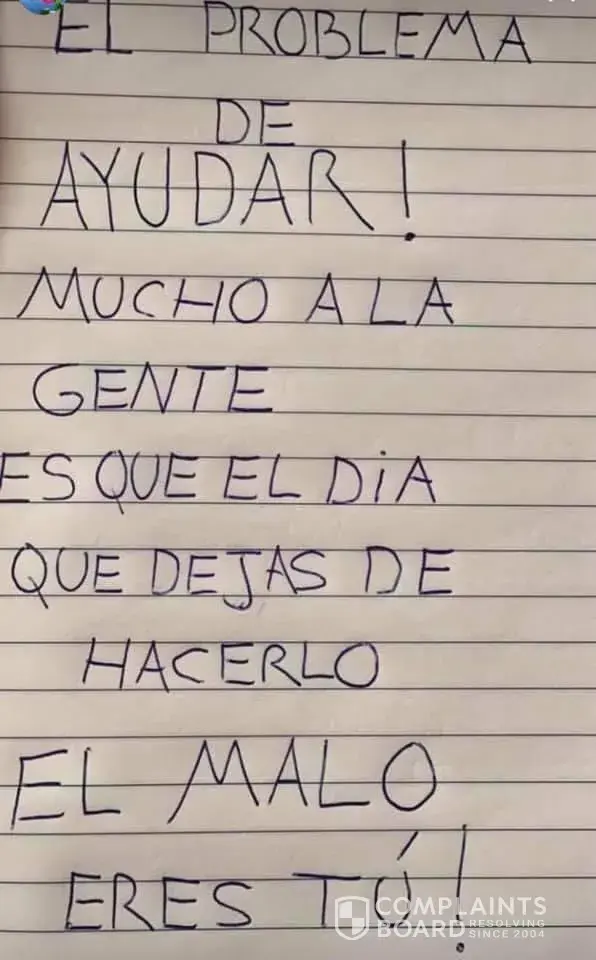 EL PROBLEMA
DE
AYUDAR!
MUCHO A LA
GENTE
ES QUE EL DiA
QUE DEJAS DE
HACERLO
EL MALO
ERES TÚ!
COMPLAINTS
BOARD RESOLVING
SINCE 2004